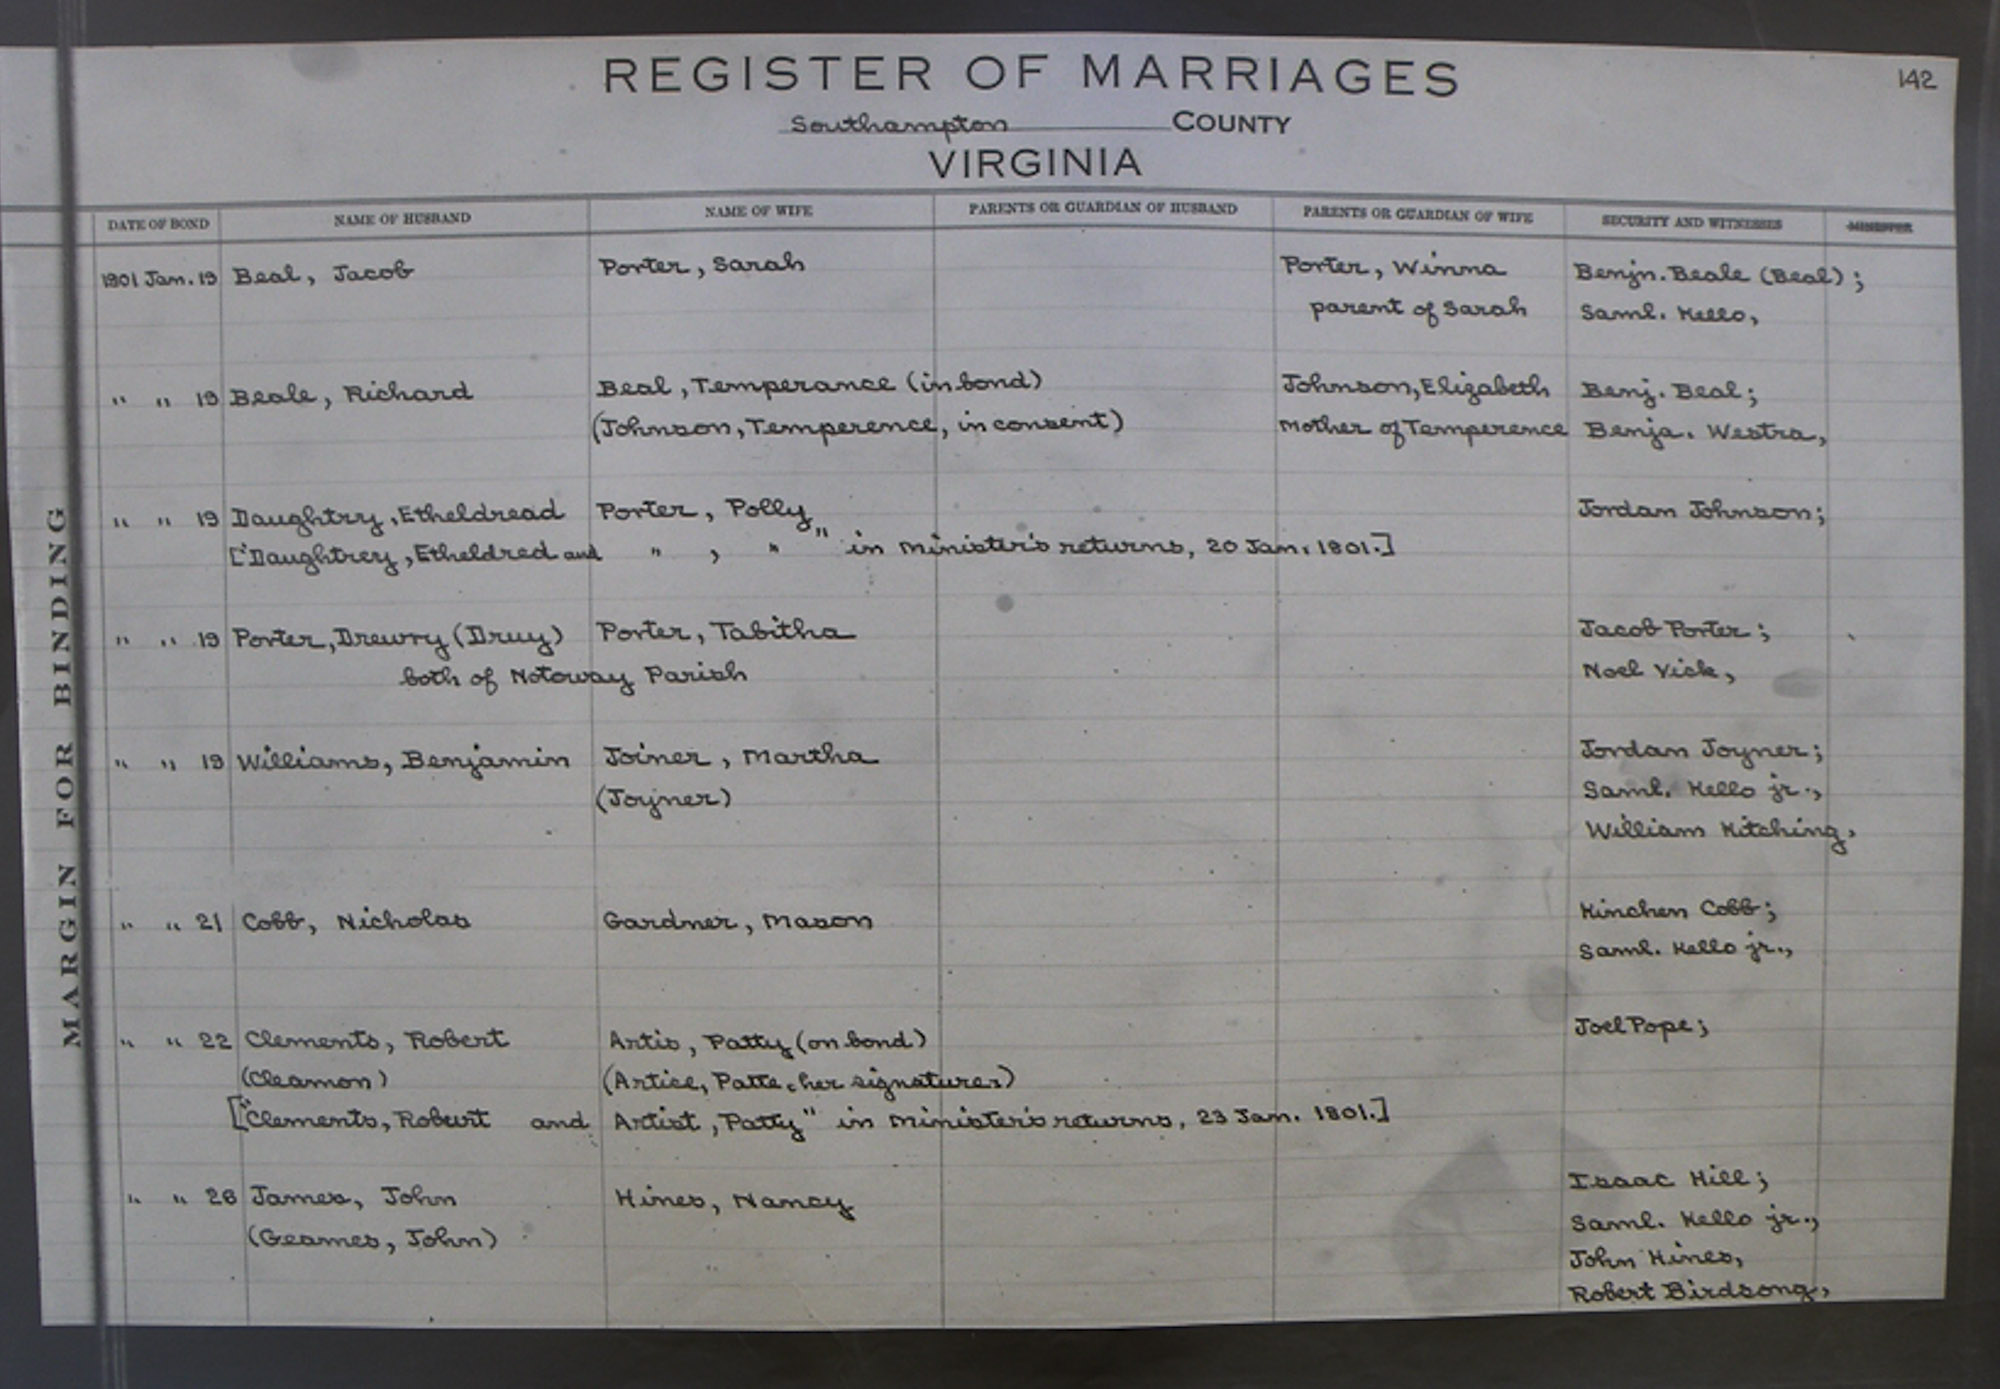 REGISTER OF MARRIAGES
142
Southampton COUNTY
VIRGINIA
MARGIN FOR BINDING
DATE OF BOND NAME OF HUSBAND NAME OF WIFE PARENTS OR GUARDIAN OF HUSBAND PARENTS OR GUARDIAN OF WIFE SECURITY AND WITNESSES MINISTER
1801 Jan. 19 Beal, Jacob Porter, Sarah Porter, Winna Benjn. Beale (Beal);
parent of Sarah Saml. Kello,
" " 19 Beale, Richard Beal, Temperance (in bond) Johnson, Elizabeth Benj. Beal;
(Johnson, Temperence, in consent) Mother of Temperence Benja. Westra,
" " 19 Daughtry, Etheldread Porter, Polly Jordan Johnson;
["Daughtrey, Etheldred and " , " " in minister's returns, 20 Jan. 1801.]
" " 19 Porter, Drewry (Druy) Porter, Tabitha Jacob Porter;
both of Notoway Parish Noel Vick,
" " 19 Williams, Benjamin Joiner, Martha Jordan Joyner;
(Joyner) Saml. Kello jr.,
William Kitching,
" " 21 Cobb, Nicholas Gardner, Mason Kinchen Cobb;
Saml. Kello jr.,
" " 22 Clements, Robert Artis, Patty (on bond) Joel Pope;
(Cleamon) (Artice, Patte, her signature)
["Clements, Robert and Artist, Patty" in minister's returns, 23 Jan. 1801.]
" " 26 James, John Hines, Nancy Isaac Hill;
(Geames, John) Saml. Kello jr.,
John Hines,
Robert Birdsong,